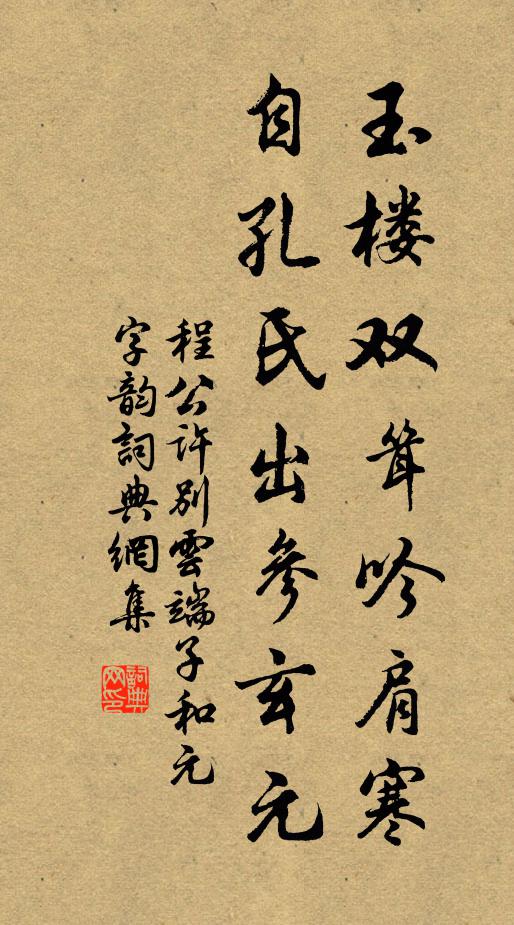 玉楼双耸吟肩寒
自孔氏出参玄元
程公许别雲端子和元
字韵詞典網集
詞典網印